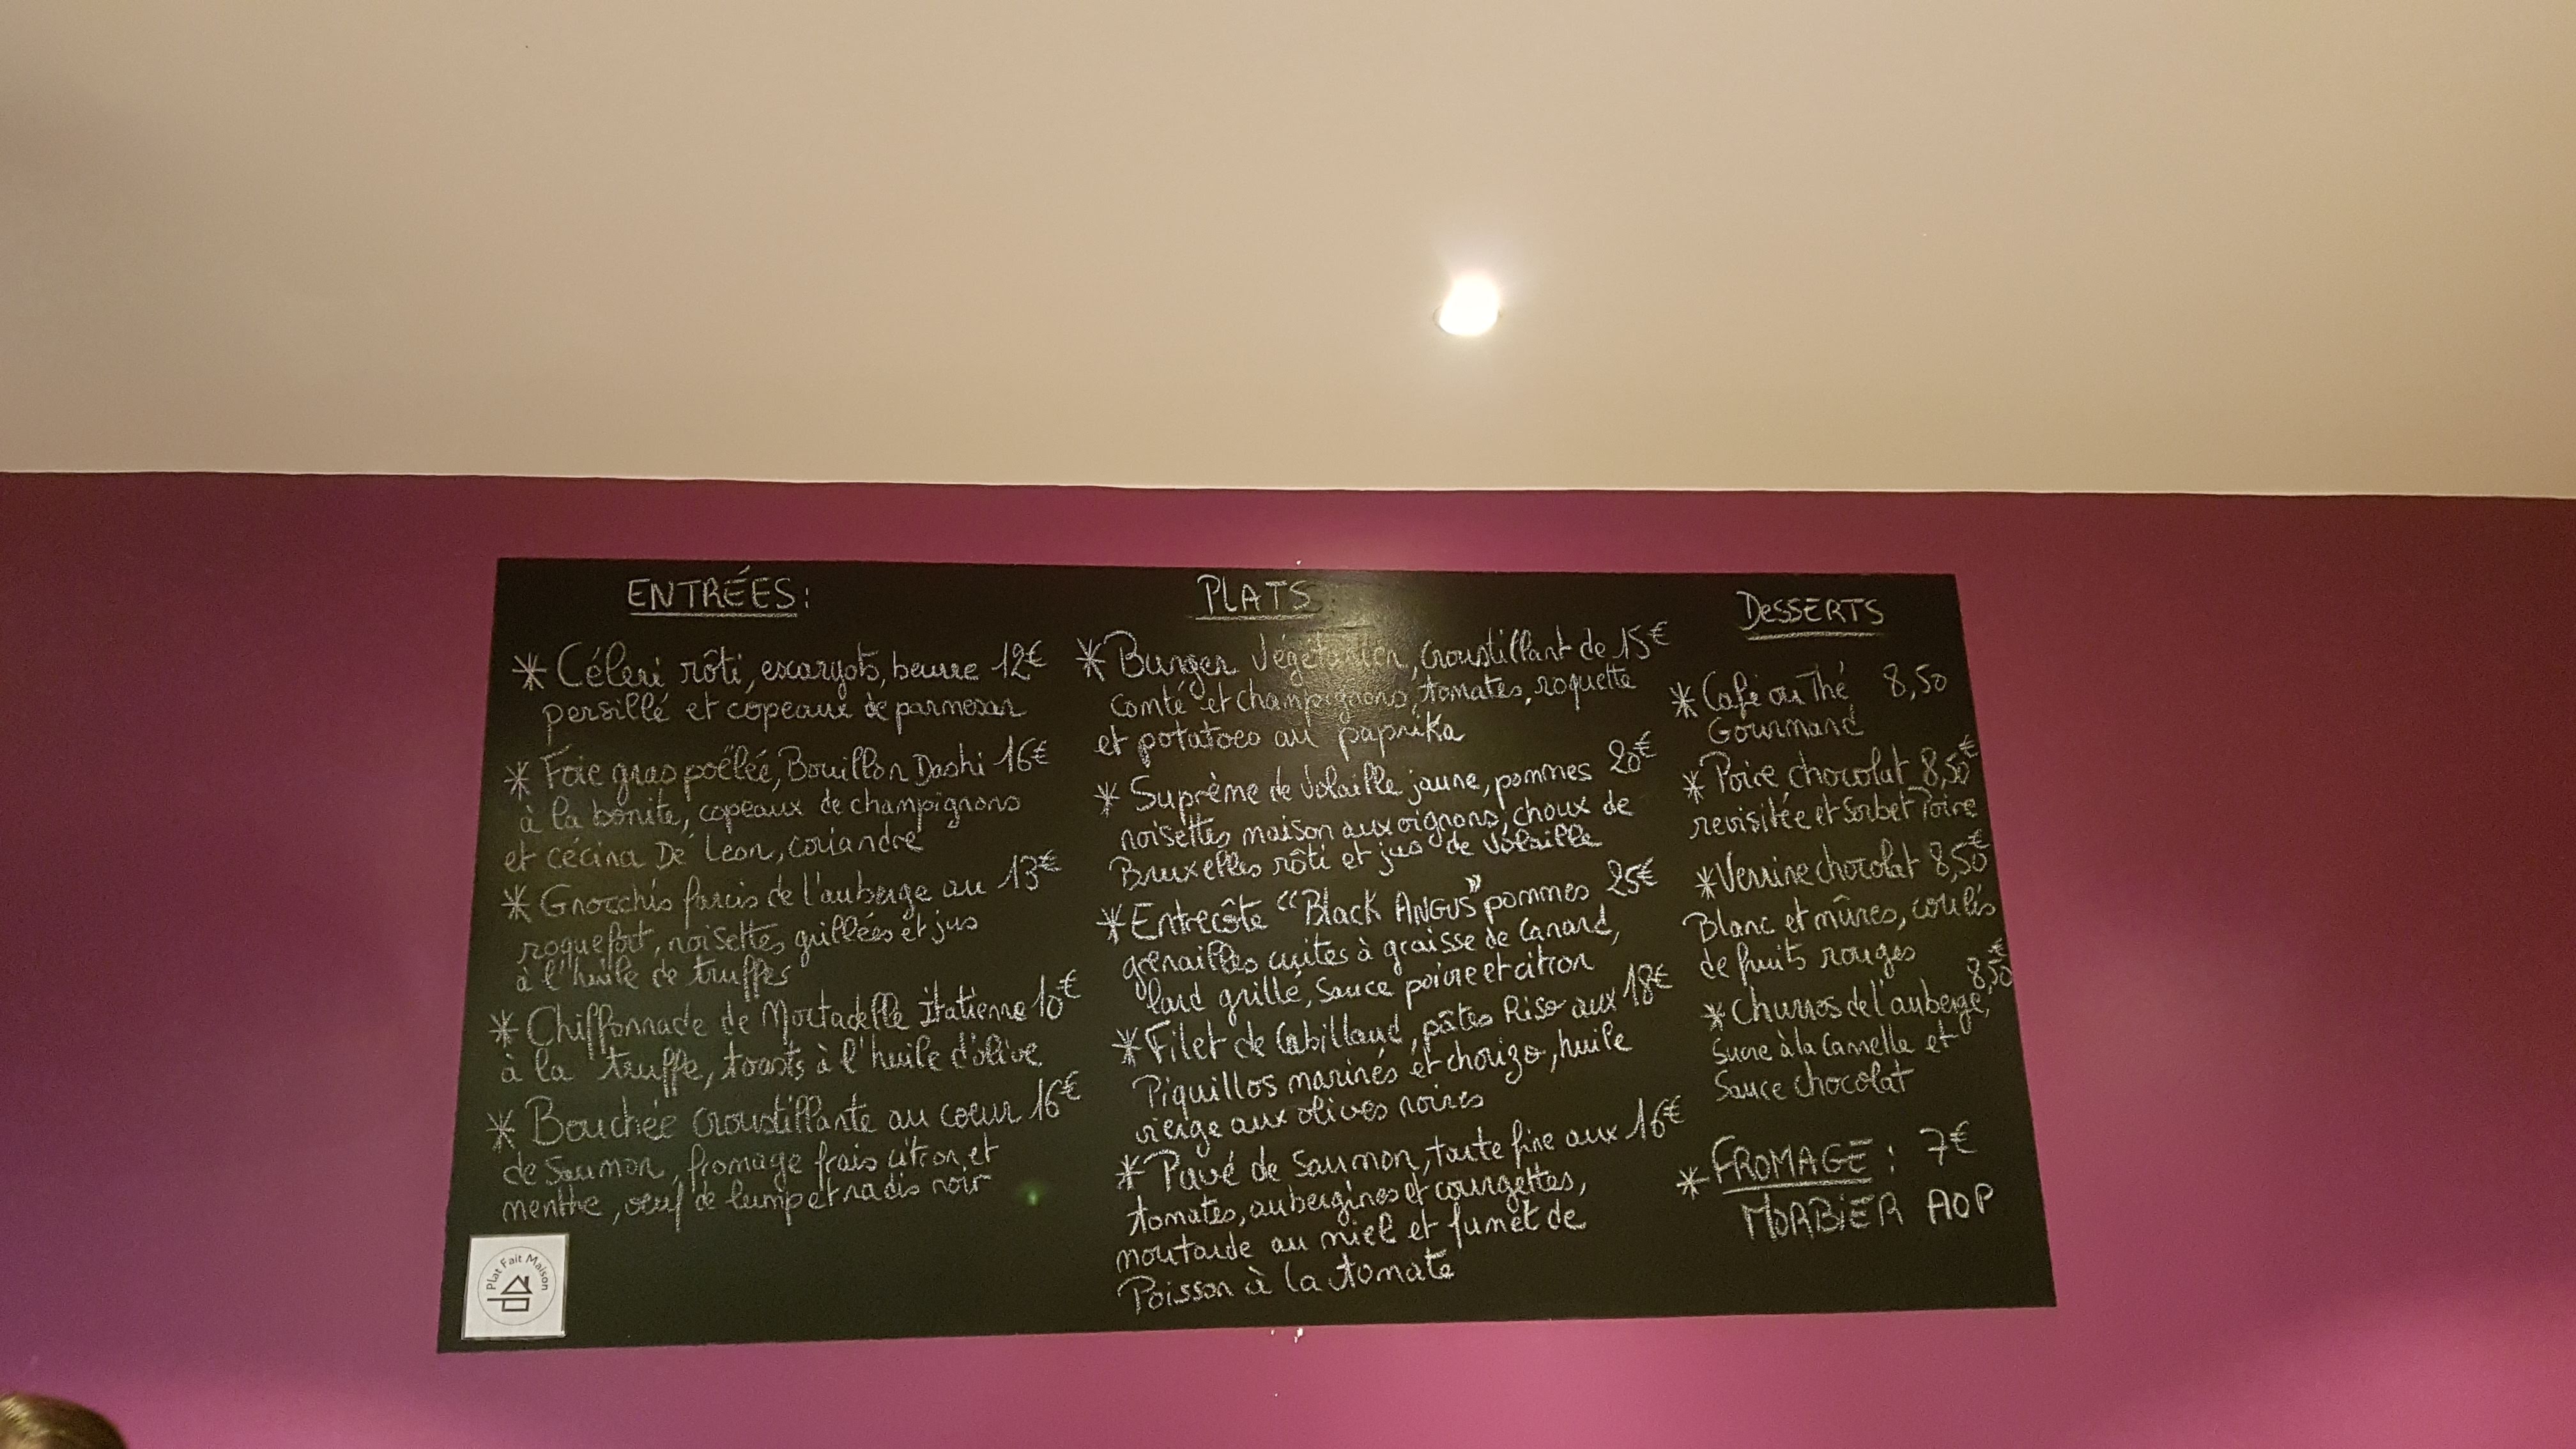 ENTRÉES:
* Céleri rôti, escargots, beurre 12€
persillé et copeaux de parmesan
* Foie gras poëlée, Bouillon Dashi 16€
à la bonite, copeaux de champignons
et cécina De Leon, coriandre
* Gnocchis farcis de l'auberge au 13€
roquefort, noisettes grillées et jus
à l'huile de truffes
* Chiffonnade de Mortadelle Italienne 10€
à la truffe, toasts à l'huile d'olive
* Bouchée croustillante au coeur 16€
de Saumon, fromage frais citron et
menthe, oeuf de lump et radis noir
Plat Fait Maison
PLATS:
* Burger Végétarien, Croustillant de 15€
comté et champignons, tomates, roquette
et potatoes au paprika
* Suprême de Volaille jaune, pommes 20€
noisettes maison aux oignons, choux de
Bruxelles rôti et jus de Volaille
* Entrecôte "Black ANGUS" pommes 25€
grenailles cuites à graisse de Canard,
lard grillé, Sauce poivre et citron
* Filet de Cabillaud, pâtes Riso aux 18€
Piquillos marinés et chorizo, huile
vierge aux olives noires
* Pavé de Saumon, tarte fine aux 16€
tomates, aubergines et courgettes,
moutarde au miel et fumet de
Poisson à la tomate
DESSERTS
* Café ou Thé 8,50
Gourmand
* Poire chocolat 8,50€
revisitée et Sorbet Poire
* Verrine chocolat 8,50€
Blanc et mûres, coulis
de fruits rouges
* Churros de l'auberge, 8,50€
Sucre à la Cannelle et
Sauce chocolat
* FROMAGE: 7€
MORBIER AOP